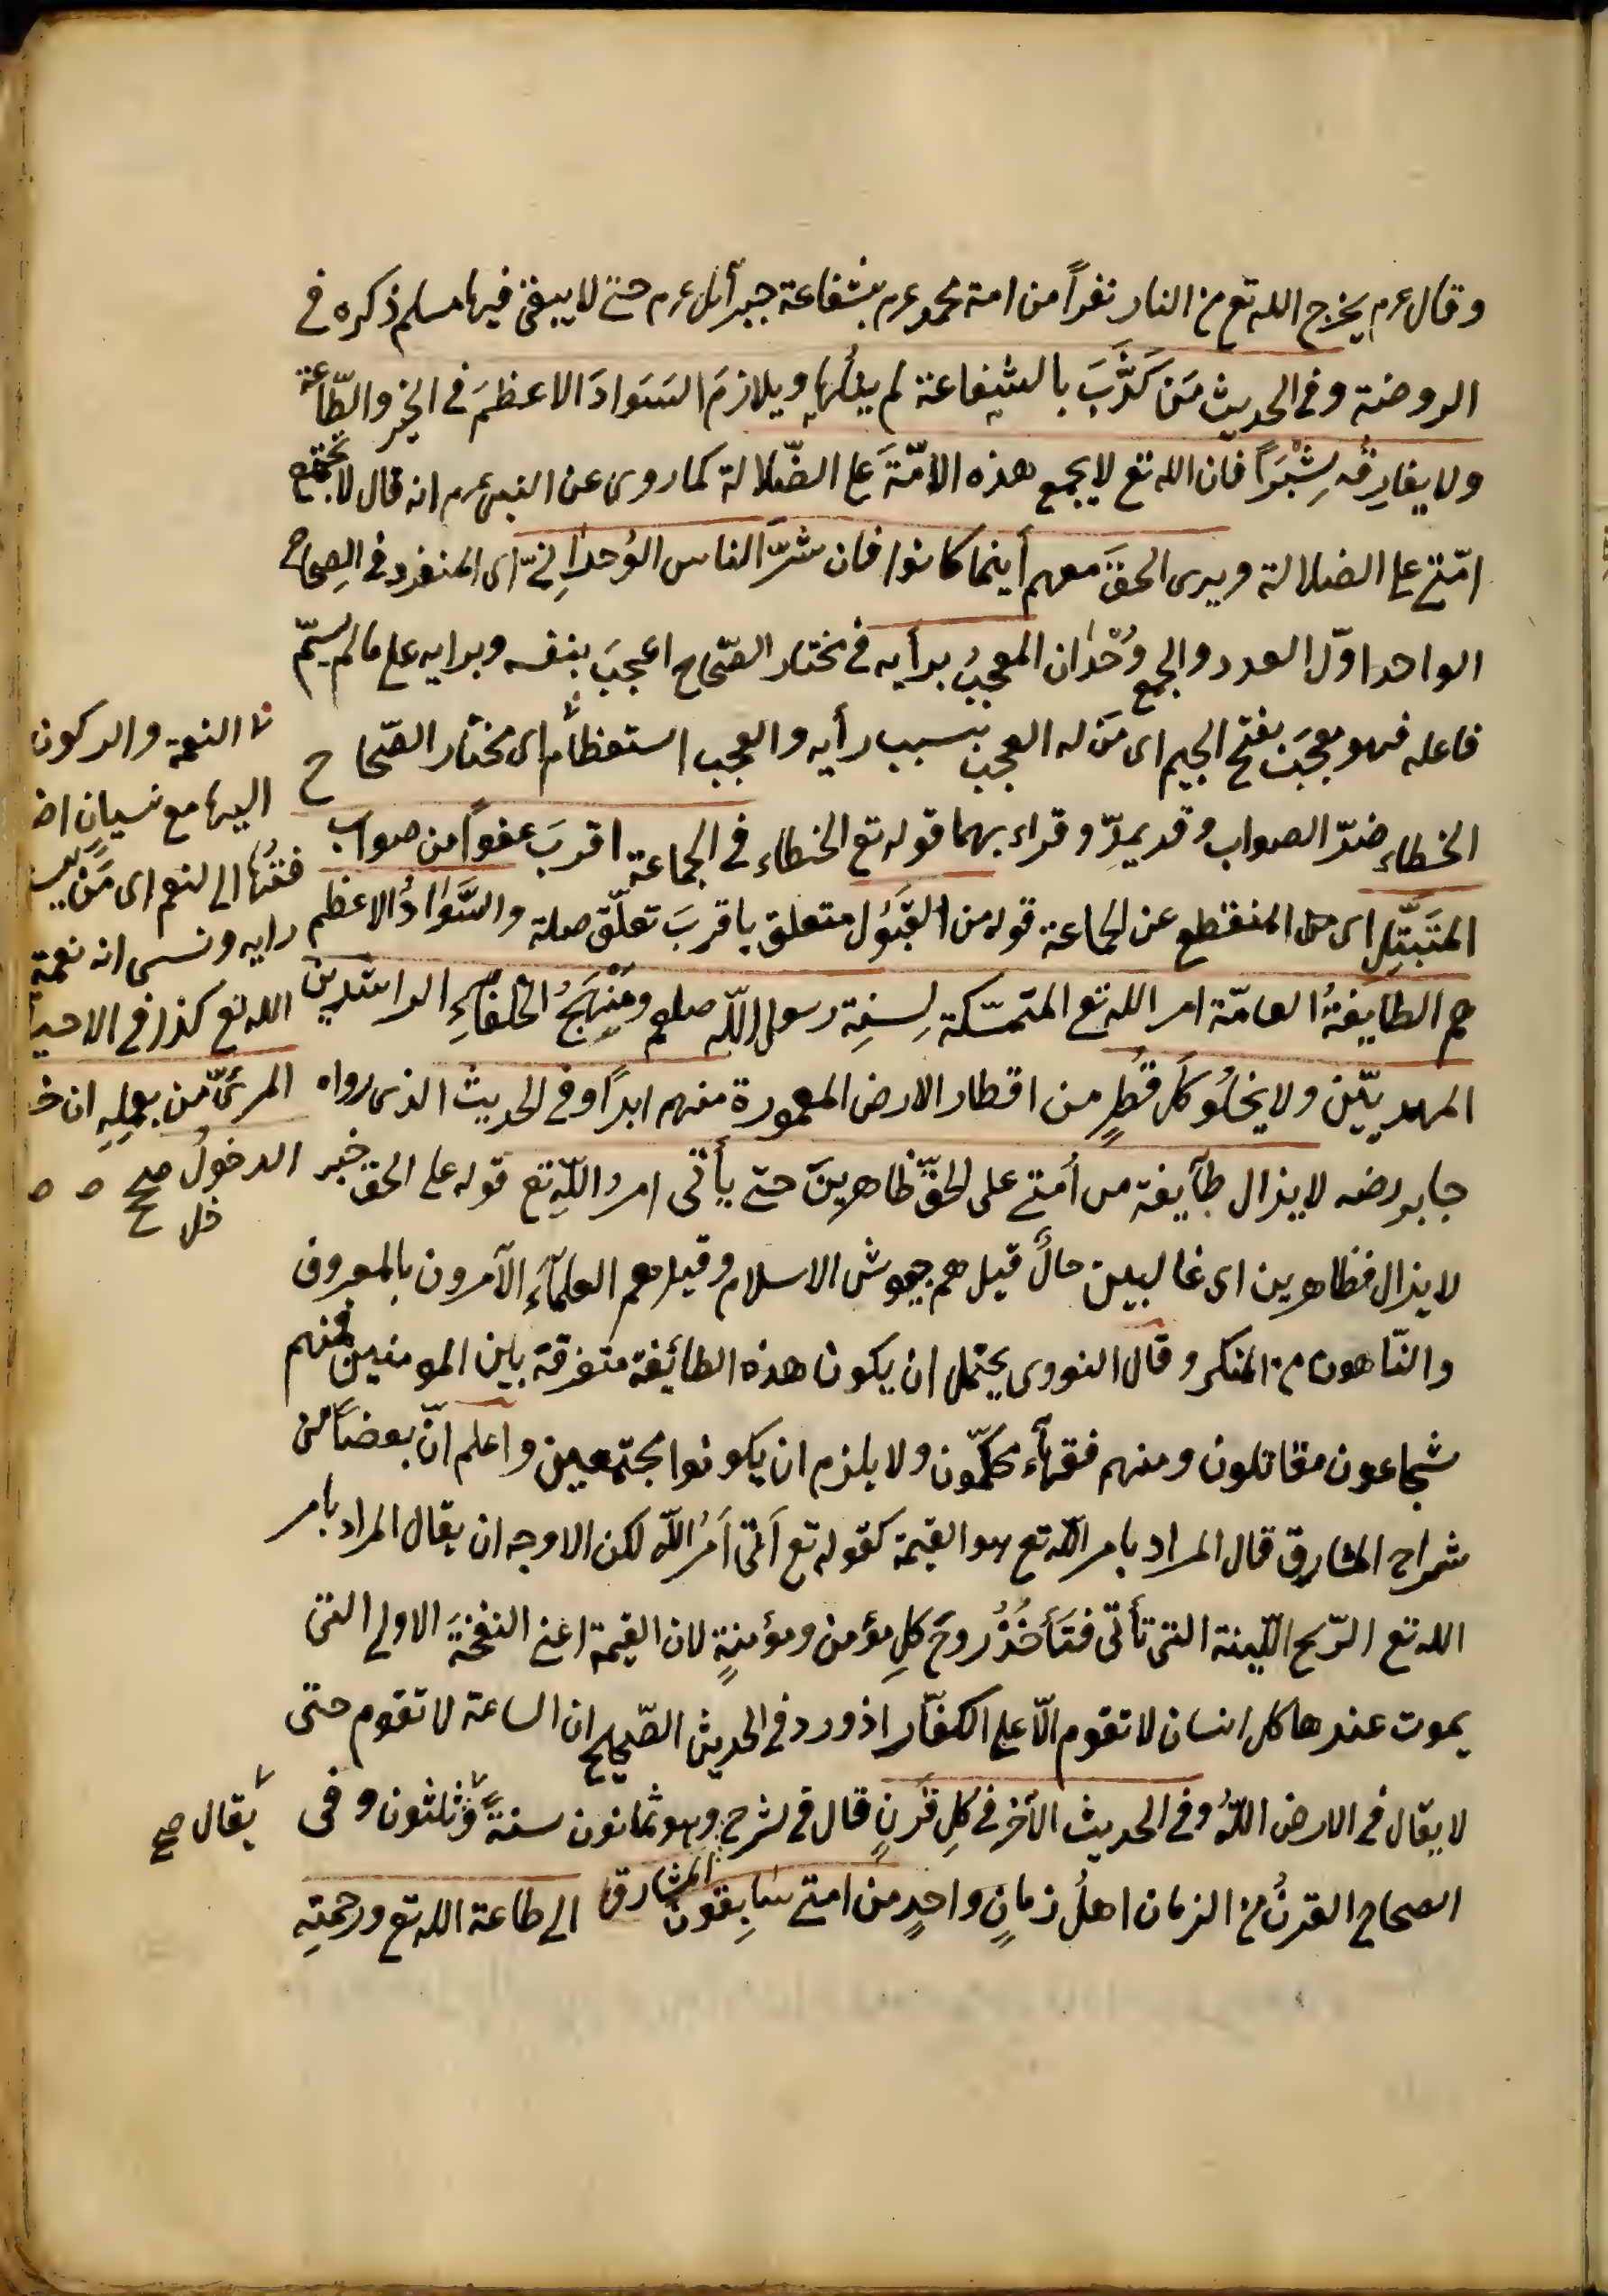 وقال عرم يخرج الله تع من النار نفراً من امة محمد عرم بشفاعة جبرآئل عرم حتى لا يبقى فيها مسلم ذكره في
الروضة وفي الحديث مَن كَذَّبَ بالشفاعة لم ينلها ويلازمَ السَوادَ الاعظمَ في الخير والطّاعة
ولا يفارقُه شِبْراً فان الله تع لا يجمع هذه الامّةَ على الضّلالة كما روى عن النبى عرم انه قال لا تجتمع
امّتى على الضلالة ويرى الحقَ معهم أينما كانوا فان شرّ الناس الوُحدانِىّ اى المنفرد في الصِحاح
الواحد اوّل العدد والجمع وُحْدان المعجِبُ برأيه في مختار الصّحاح اعجِبَ بنفسه وبرايه على ما لم يسمّ
فاعله فهو معجَبٌ بفتح الجيم اى مَن له العجبُ بسبب رأيه والعجب استعظام اى مختار الصّحاح
الخطاء ضدّ الصواب وقد يمدّ وقراء بهما قوله تع الخطاء في الجماعة اقربَ عفواً من صواب
المتَبتِّلِ اى من المنقطع عن الجماعة قوله من القَبول متعلق باقربَ تعلّق صلة والسَّوادُ الاعظم
هم الطايفةُ العامّة امر الله تع المتمسّكة لِسنةِ رسول الله صلعم ومَنْهَجُ الخلفاءِ الراشدين
المهديّين ولا يخلُو كل قُطرٍ من اقطار الارض المعمورة منهم ابداً وفي الحديث الذى رواه
جابر رضه لا يزال طآيفة من أمتى على الحقّ ظاهرينَ حتى يأتى امر اللّهِ تع قوله على الحق خبر
لا يزال فظاهرين اى غالبين حالٌ قيل هم جيوش الاسلام وقيل هم العلمآءُ الآمرون بالمعروف
والنّاهون من المنكر وقال النووى يحتمل ان يكون هذه الطائفة متفرقة بين المومنين فمنهم
شجاعون مقاتلون ومنهم فقهآء محكمّون ولا يلزم ان يكونوا مجتمعين واعلم انّ بعضاً من
شراح المشارق قال المراد بامر الله تع هو القيمة كقوله تع أتى أمرُ اللّه لكن الاوجه ان يقال المراد بامر
الله تع الرّيح الليّنة التى تأتى فتَأخُذُ روحَ كلِ مؤمن ومؤمنةٍ لان القيمة اعنى النفخةَ الاولى التى
يموت عندها كل انسان لا تقوم الّا على الكفّار اذ ورد في الحديث الصّحيح ان الساعة لا تقوم حتى
لا يقال في الارض اللّهُ وفي الحديث الآخر في كلِ قَرنٍ قال في شرح المشارق وهو ثمانون سنةً وثلثون وفى
الصحاح القرنُ من الزمان اهلُ زمانٍ واحدٍ من امتى سَابِقون الى طاعة الله تع ورحمتِه
النعمة والركون
اليها مع نسيان اضا
فتُها الى النعم اى مَن
رايه ونسى انه نعمة
الله تع كذا في الاحيا
المرئىّ من بعلِهِ ان
الدخولُ صح
يقال صح